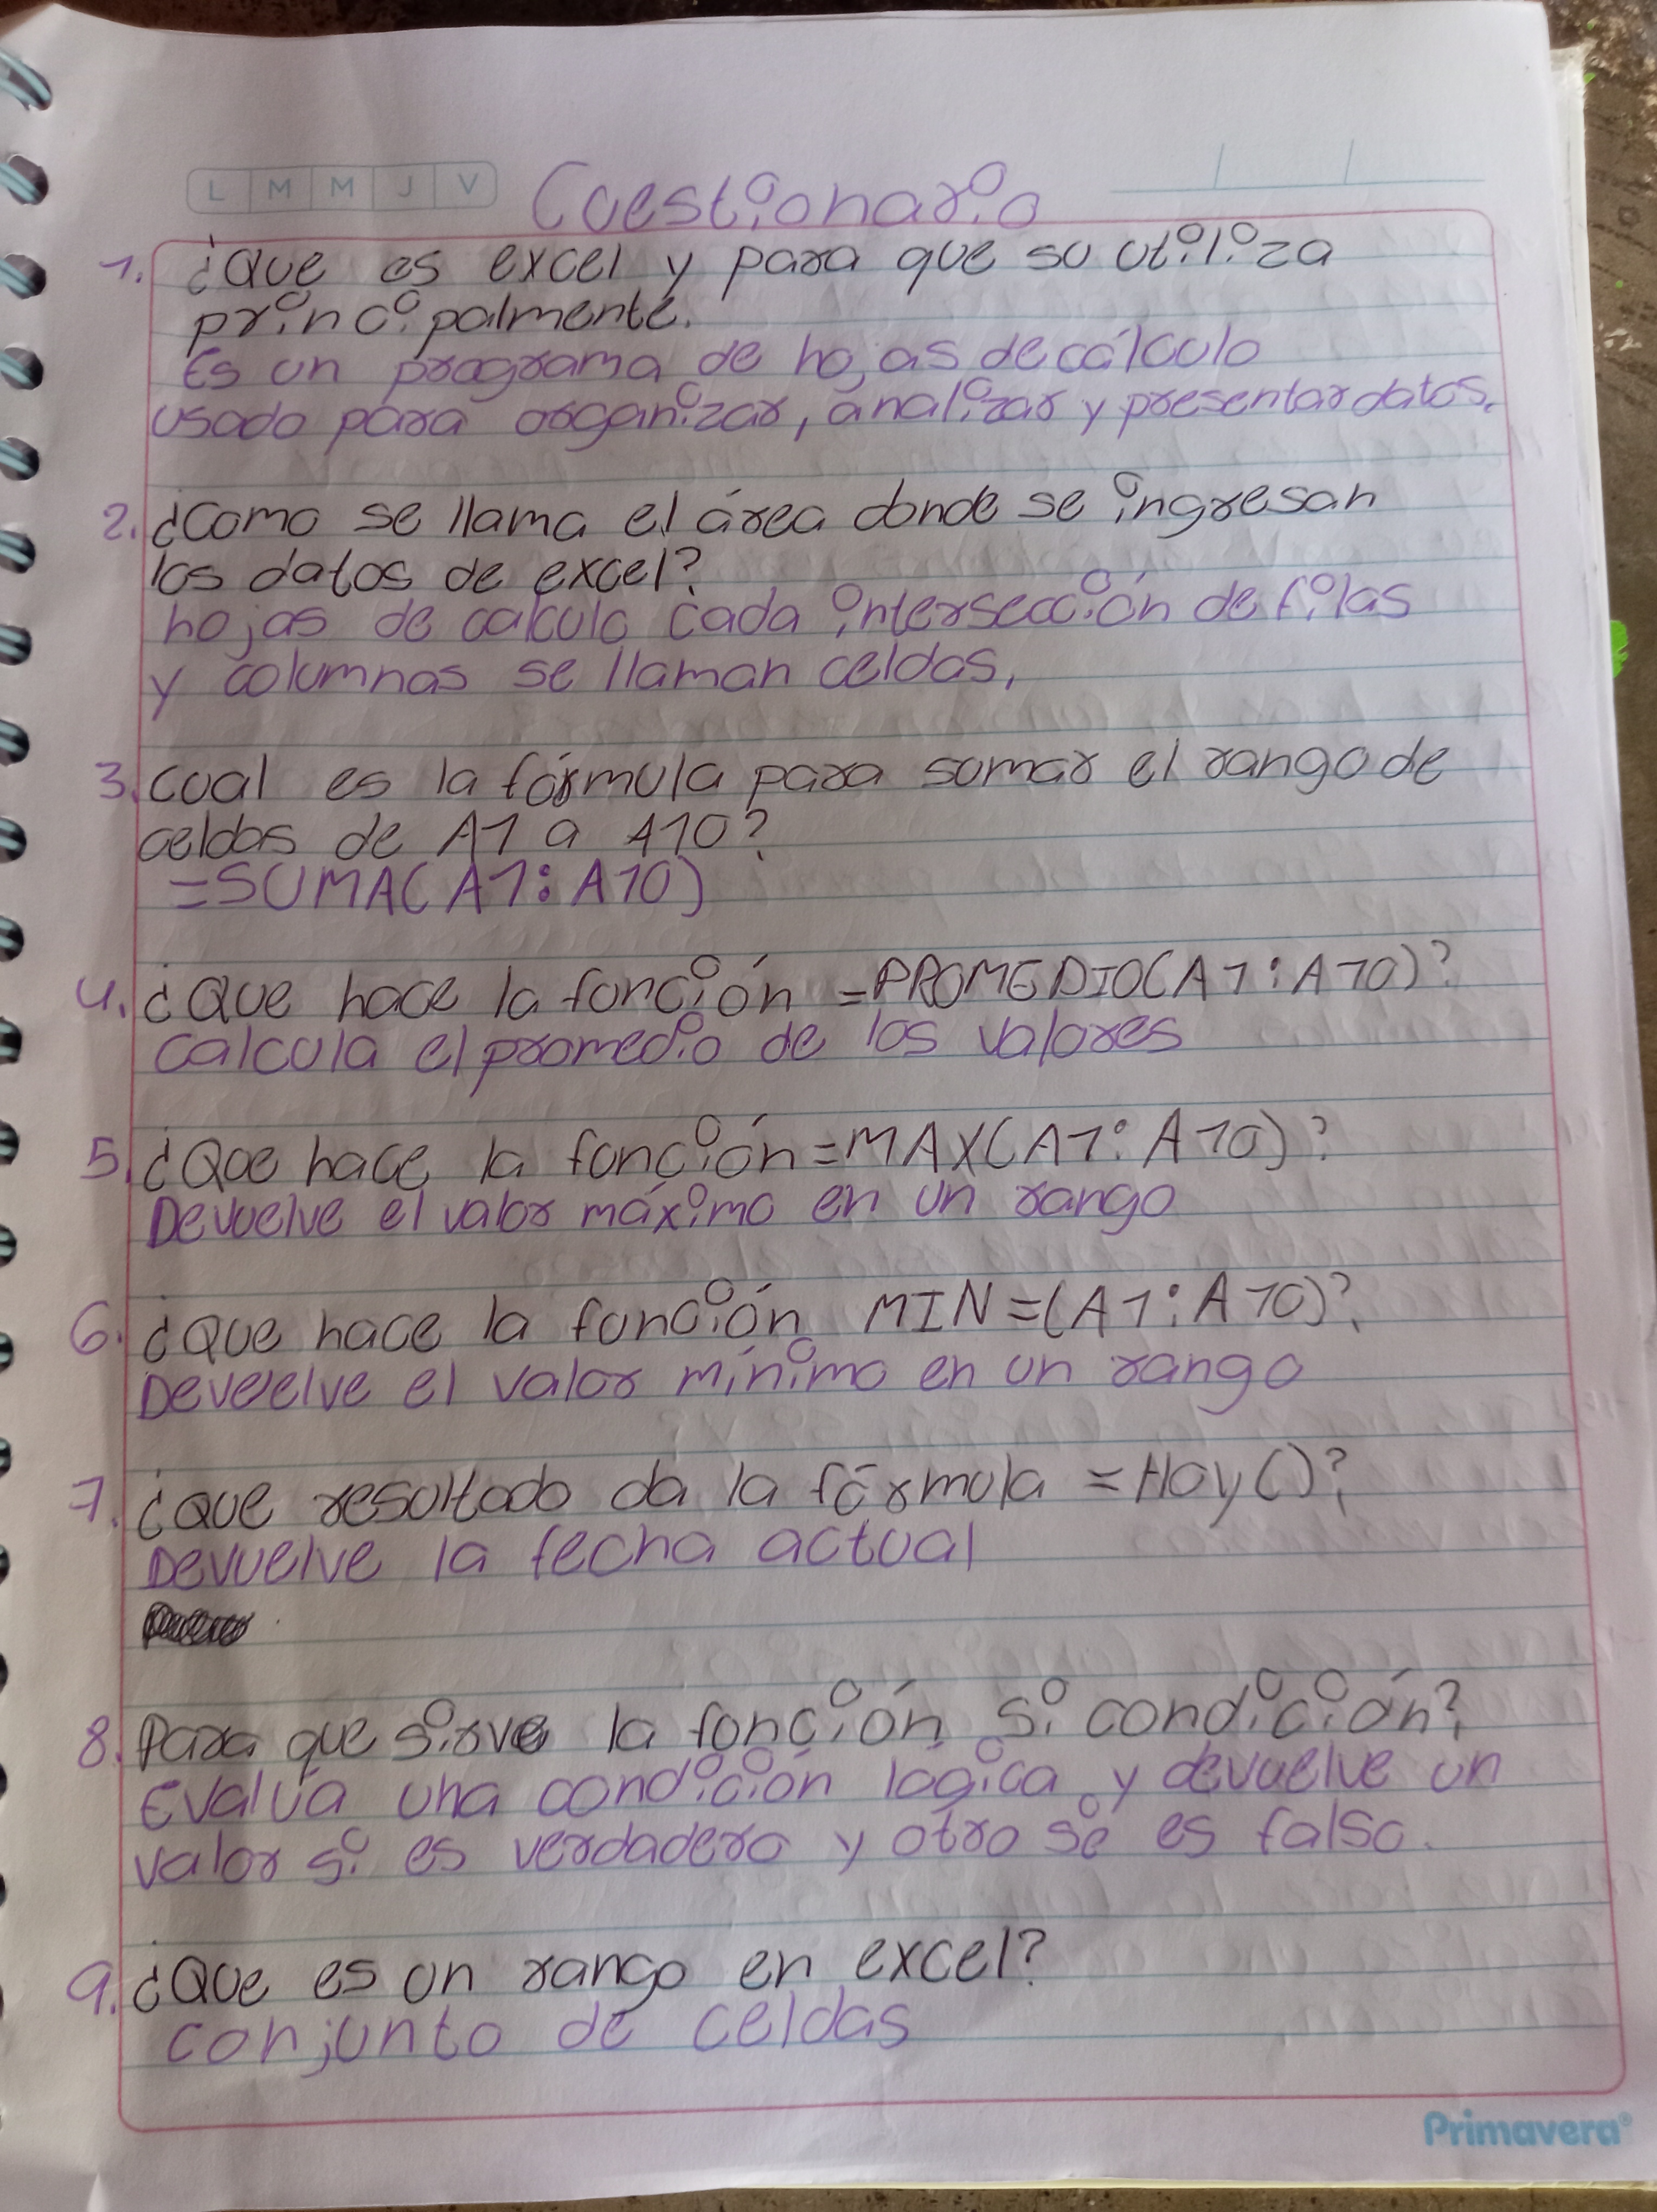 L M M J V
Cuestionario
1. ¿Que es excel y para que su utiliza
principalmente.
Es un programa de hojas de cálculo
usado para organizar, analizar y presentar datos.
2. ¿Como se llama el área donde se ingresan
los datos de excel?
hojas de calculo cada intersección de filas
y columnas se llaman celdas,
3. cual es la fórmula para sumar el rango de
celdas de A1 a A10?
=SUMA(A1:A10)
4. ¿Que hace la función =PROMEDIO(A1:A10)?
calcula el promedio de los valores
5. ¿Que hace la función=MAX(A1:A10)?
Devuelve el valor máximo en un rango
6. ¿Que hace la función MIN=(A1:A10)?
Devuelve el valor mínimo en un rango
7. ¿Que resultado da la fórmula =Hoy()?
Devuelve la fecha actual
8. Para que sirve la función si condición?
Evalúa una condición lógica y devuelve un
valor si es verdadero y otro se es falso.
9. ¿Que es un rango en excel?
conjunto de celdas
Primavera®